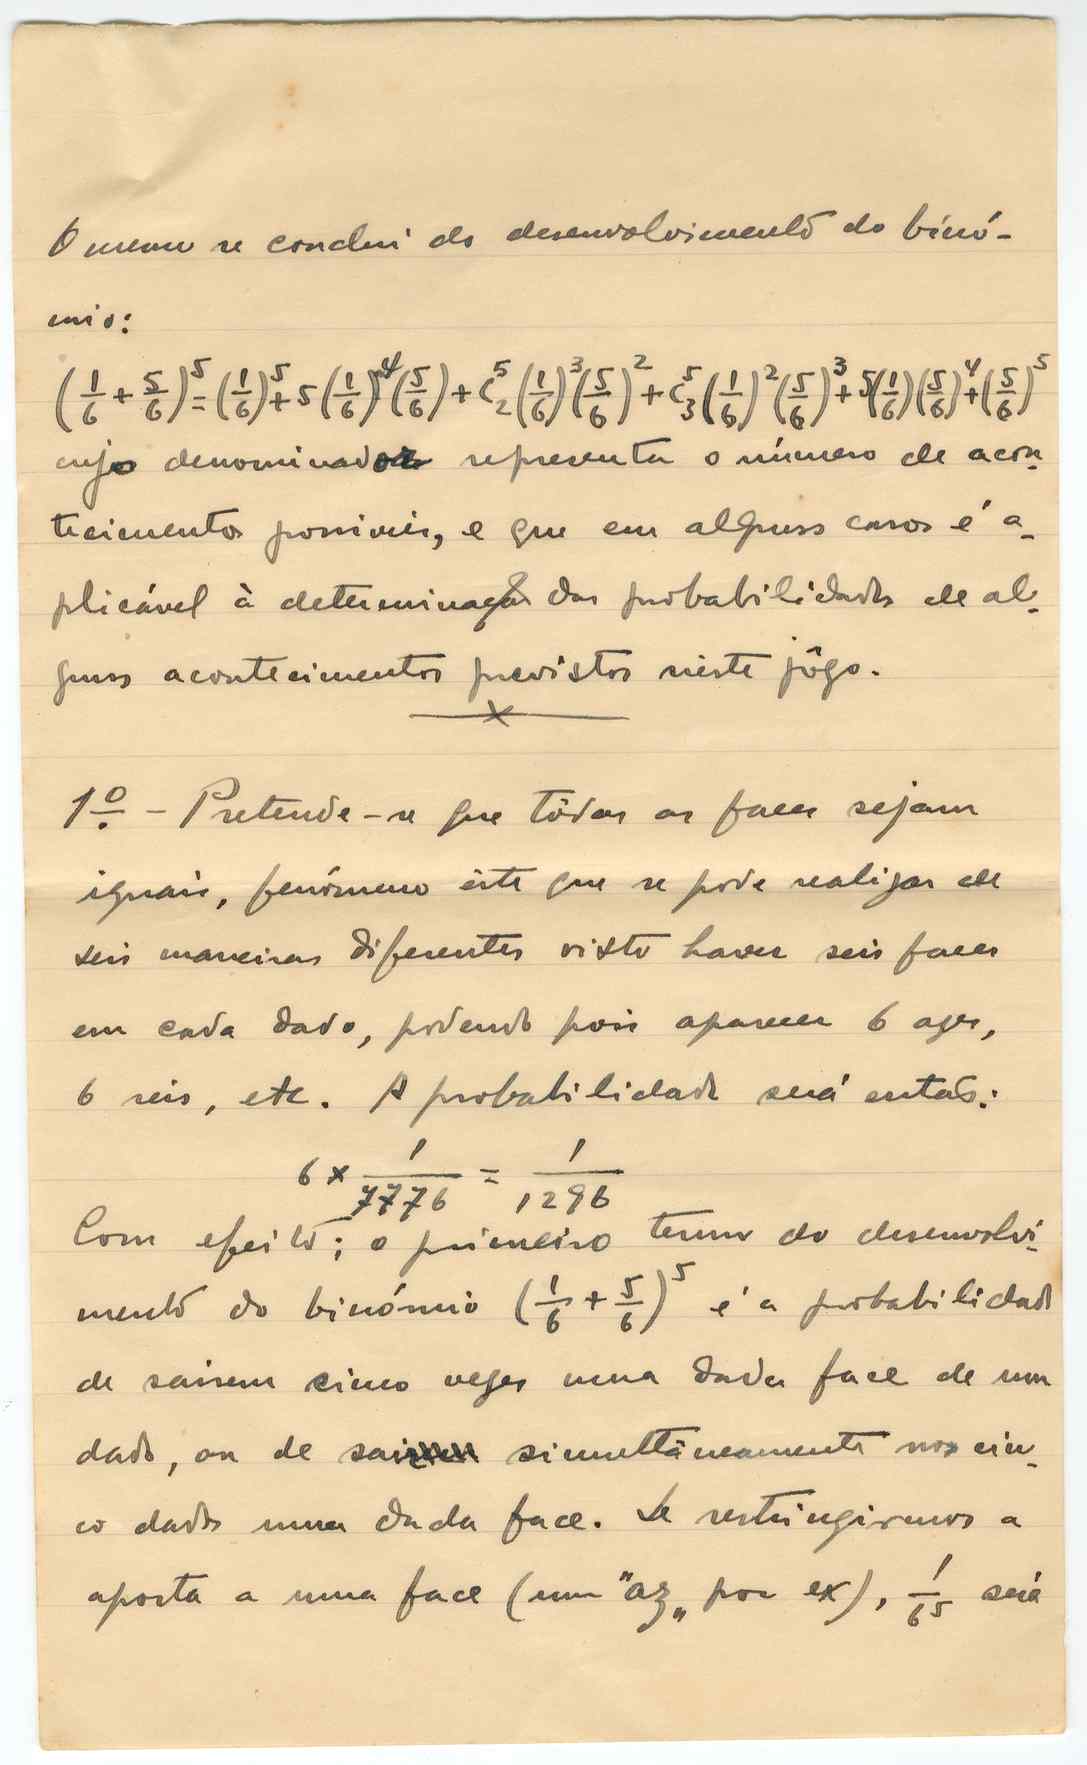 O mesmo se conclui do desenvolvimento do binó-
mio:
(1/6 + 5/6)^5 = (1/6)^5 + 5 (1/6)^4 (5/6) + C^5_2 (1/6)^3 (5/6)^2 + C^5_3 (1/6)^2 (5/6)^3 + 5 (1/6) (5/6)^4 + (5/6)^5
cujo denominador representa o número de acon-
tecimentos possiveis, e que em alguns casos é a-
plicável à determinação das probabilidades de al-
guns acontecimentos previstos neste jôgo.
1º - Pretende-se que tôdas as faces sejam
iguais, fenómeno êste que se pode realizar de
seis maneiras diferentes visto haver seis faces
em cada dado, podendo pois aparecer 6 azes,
6 seis, etc. A probabilidade será então:
6 × 1/7776 = 1/1296
Com efeito; o primeiro termo do desenvolvi-
mento do binómio (1/6 + 5/6)^5 é a probabilidade
de sairem cinco vezes uma dada face de um
dado, ou de simultâneamente nos cin-
co dados uma dada face. Se restringirmos a
aposta a uma face (um "az" por ex), 1/6^5 será